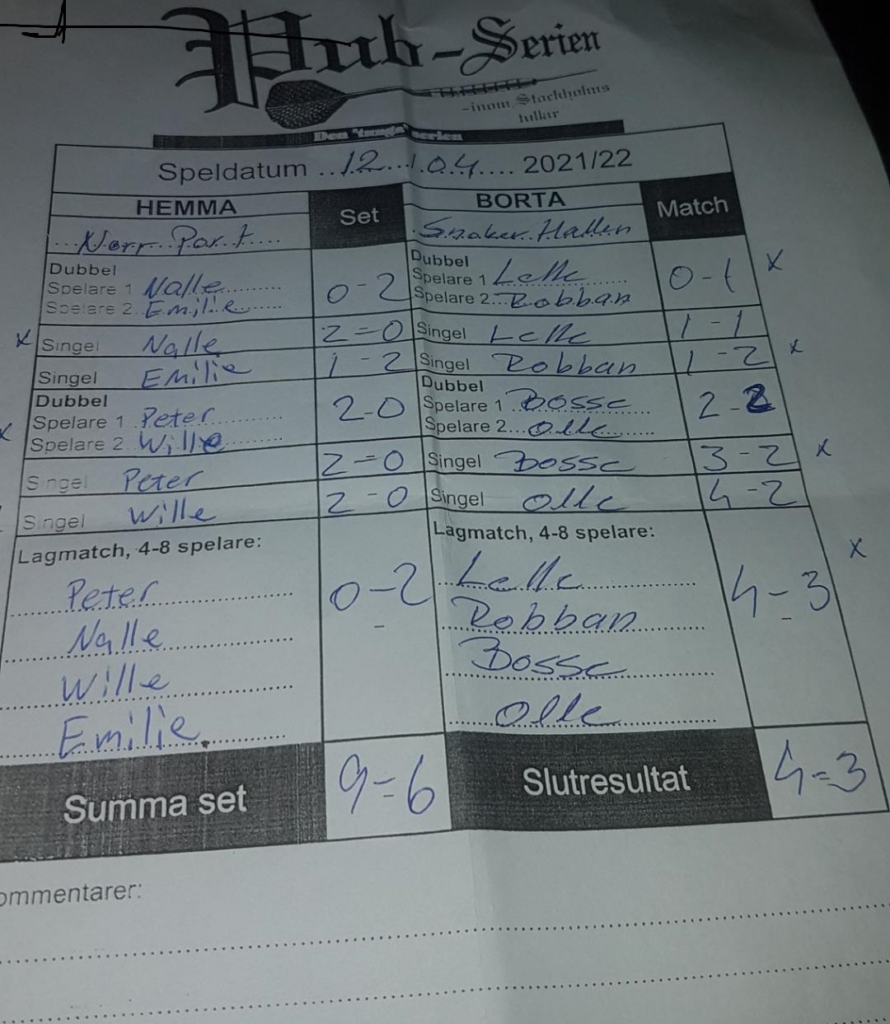 Pub-Serien
-inom Stockholms
tullar
Den "tunga" serien
Speldatum ..12...1.04.... 2021/22
HEMMA Set BORTA Match
Norr Port Snoker Hallen
Dubbel Dubbel
Spelare 1 Nalle 0-2 Spelare 1 Lelle 0-1 x
Spelare 2 Emilie Spelare 2 Robban
x Singel Nalle 2=0 Singel Lelle 1-1
Singel Emilie 1-2 Singel Robban 1-2 x
Dubbel Dubbel
x Spelare 1 Peter 2-0 Spelare 1 Bosse 2-2
Spelare 2 Wille Spelare 2 Olle
Singel Peter 2=0 Singel Bosse 3-2 x
Singel Wille 2-0 Singel Olle 4-2
Lagmatch, 4-8 spelare: Lagmatch, 4-8 spelare:
Peter 0-2 Lelle 4-3 x
Nalle Robban
Wille Bosse
Emilie Olle
Summa set 9=6 Slutresultat 4=3
ommentarer: